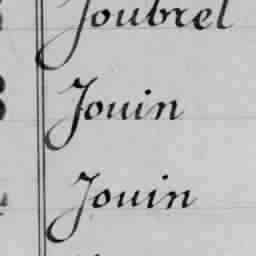 Joubrel
Jouin
Jouin